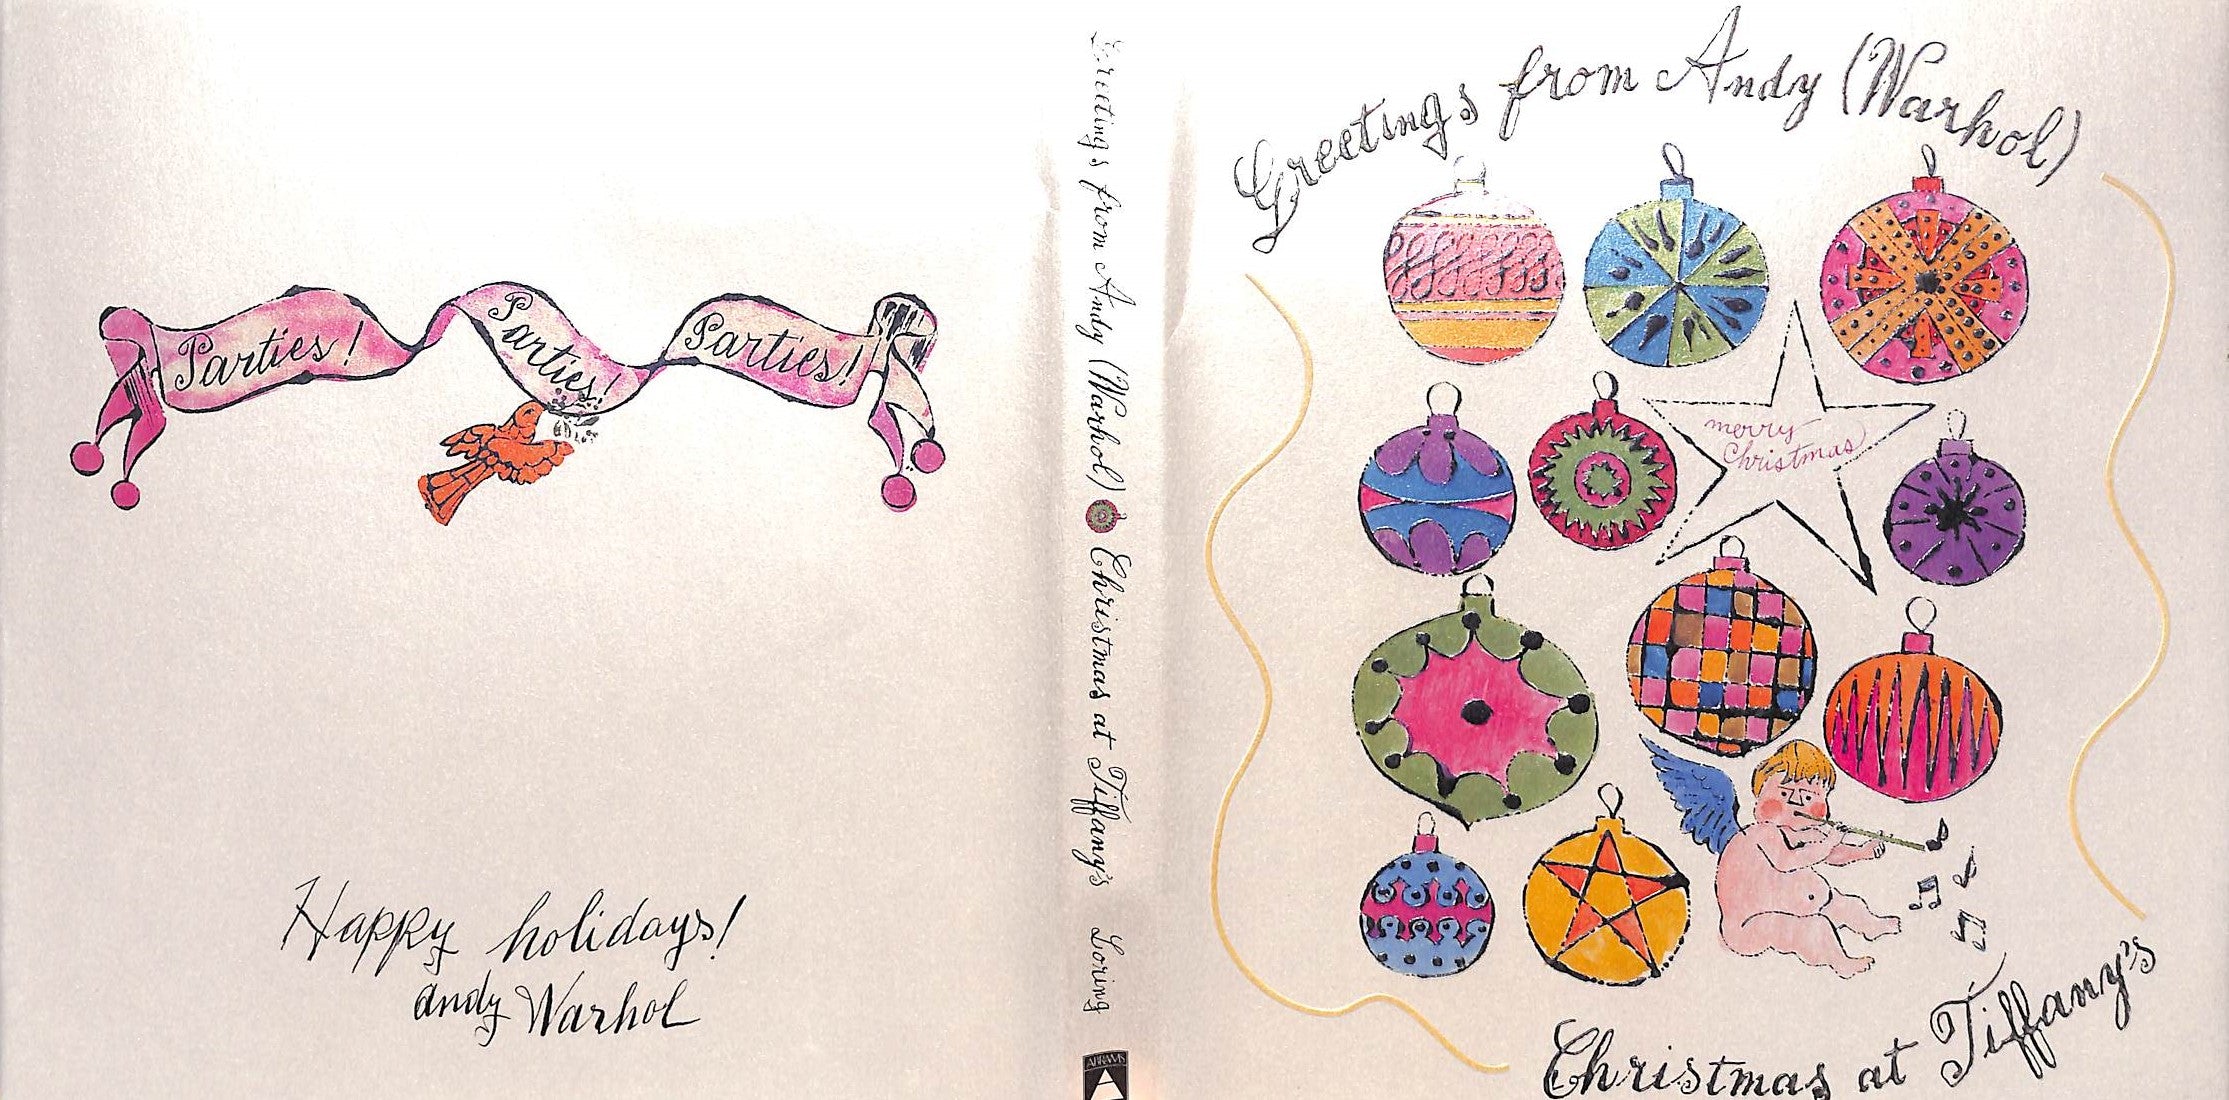 Parties!
Parties!
Parties!
Happy holidays!
andy Warhol
Greetings from Andy (Warhol) Christmas at Tiffany's Loring
ABRAMS
A
Greetings from Andy (Warhol)
merry
Christmas
Christmas at Tiffany's